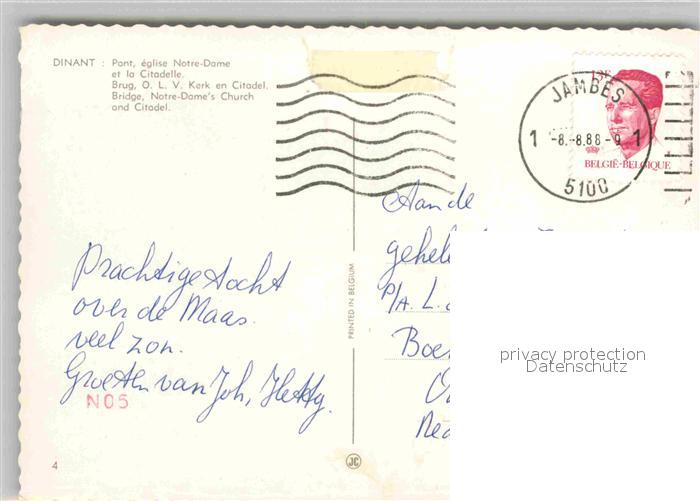 DINANT : Pont, église Notre-Dame
et la Citadelle.
Brug, O. L. V. Kerk en Citadel.
Bridge, Notre-Dame's Church
and Citadel.
13F
JAMBES
1 -8.-8.88-9 1
5100
BELGIË-BELGIQUE
Aan de
gehele
P/A. L.
Prachtige tocht
over de Maas.
veel zon.
Groeten van Joh, Hetty.
N05
PRINTED IN BELGIUM
privacy protection
Datenschutz
4
JC